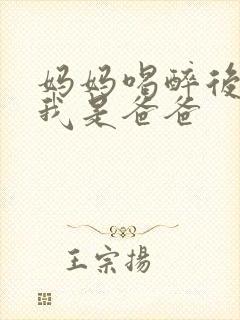 妈妈喝醉後
我是爸爸
王宗揚